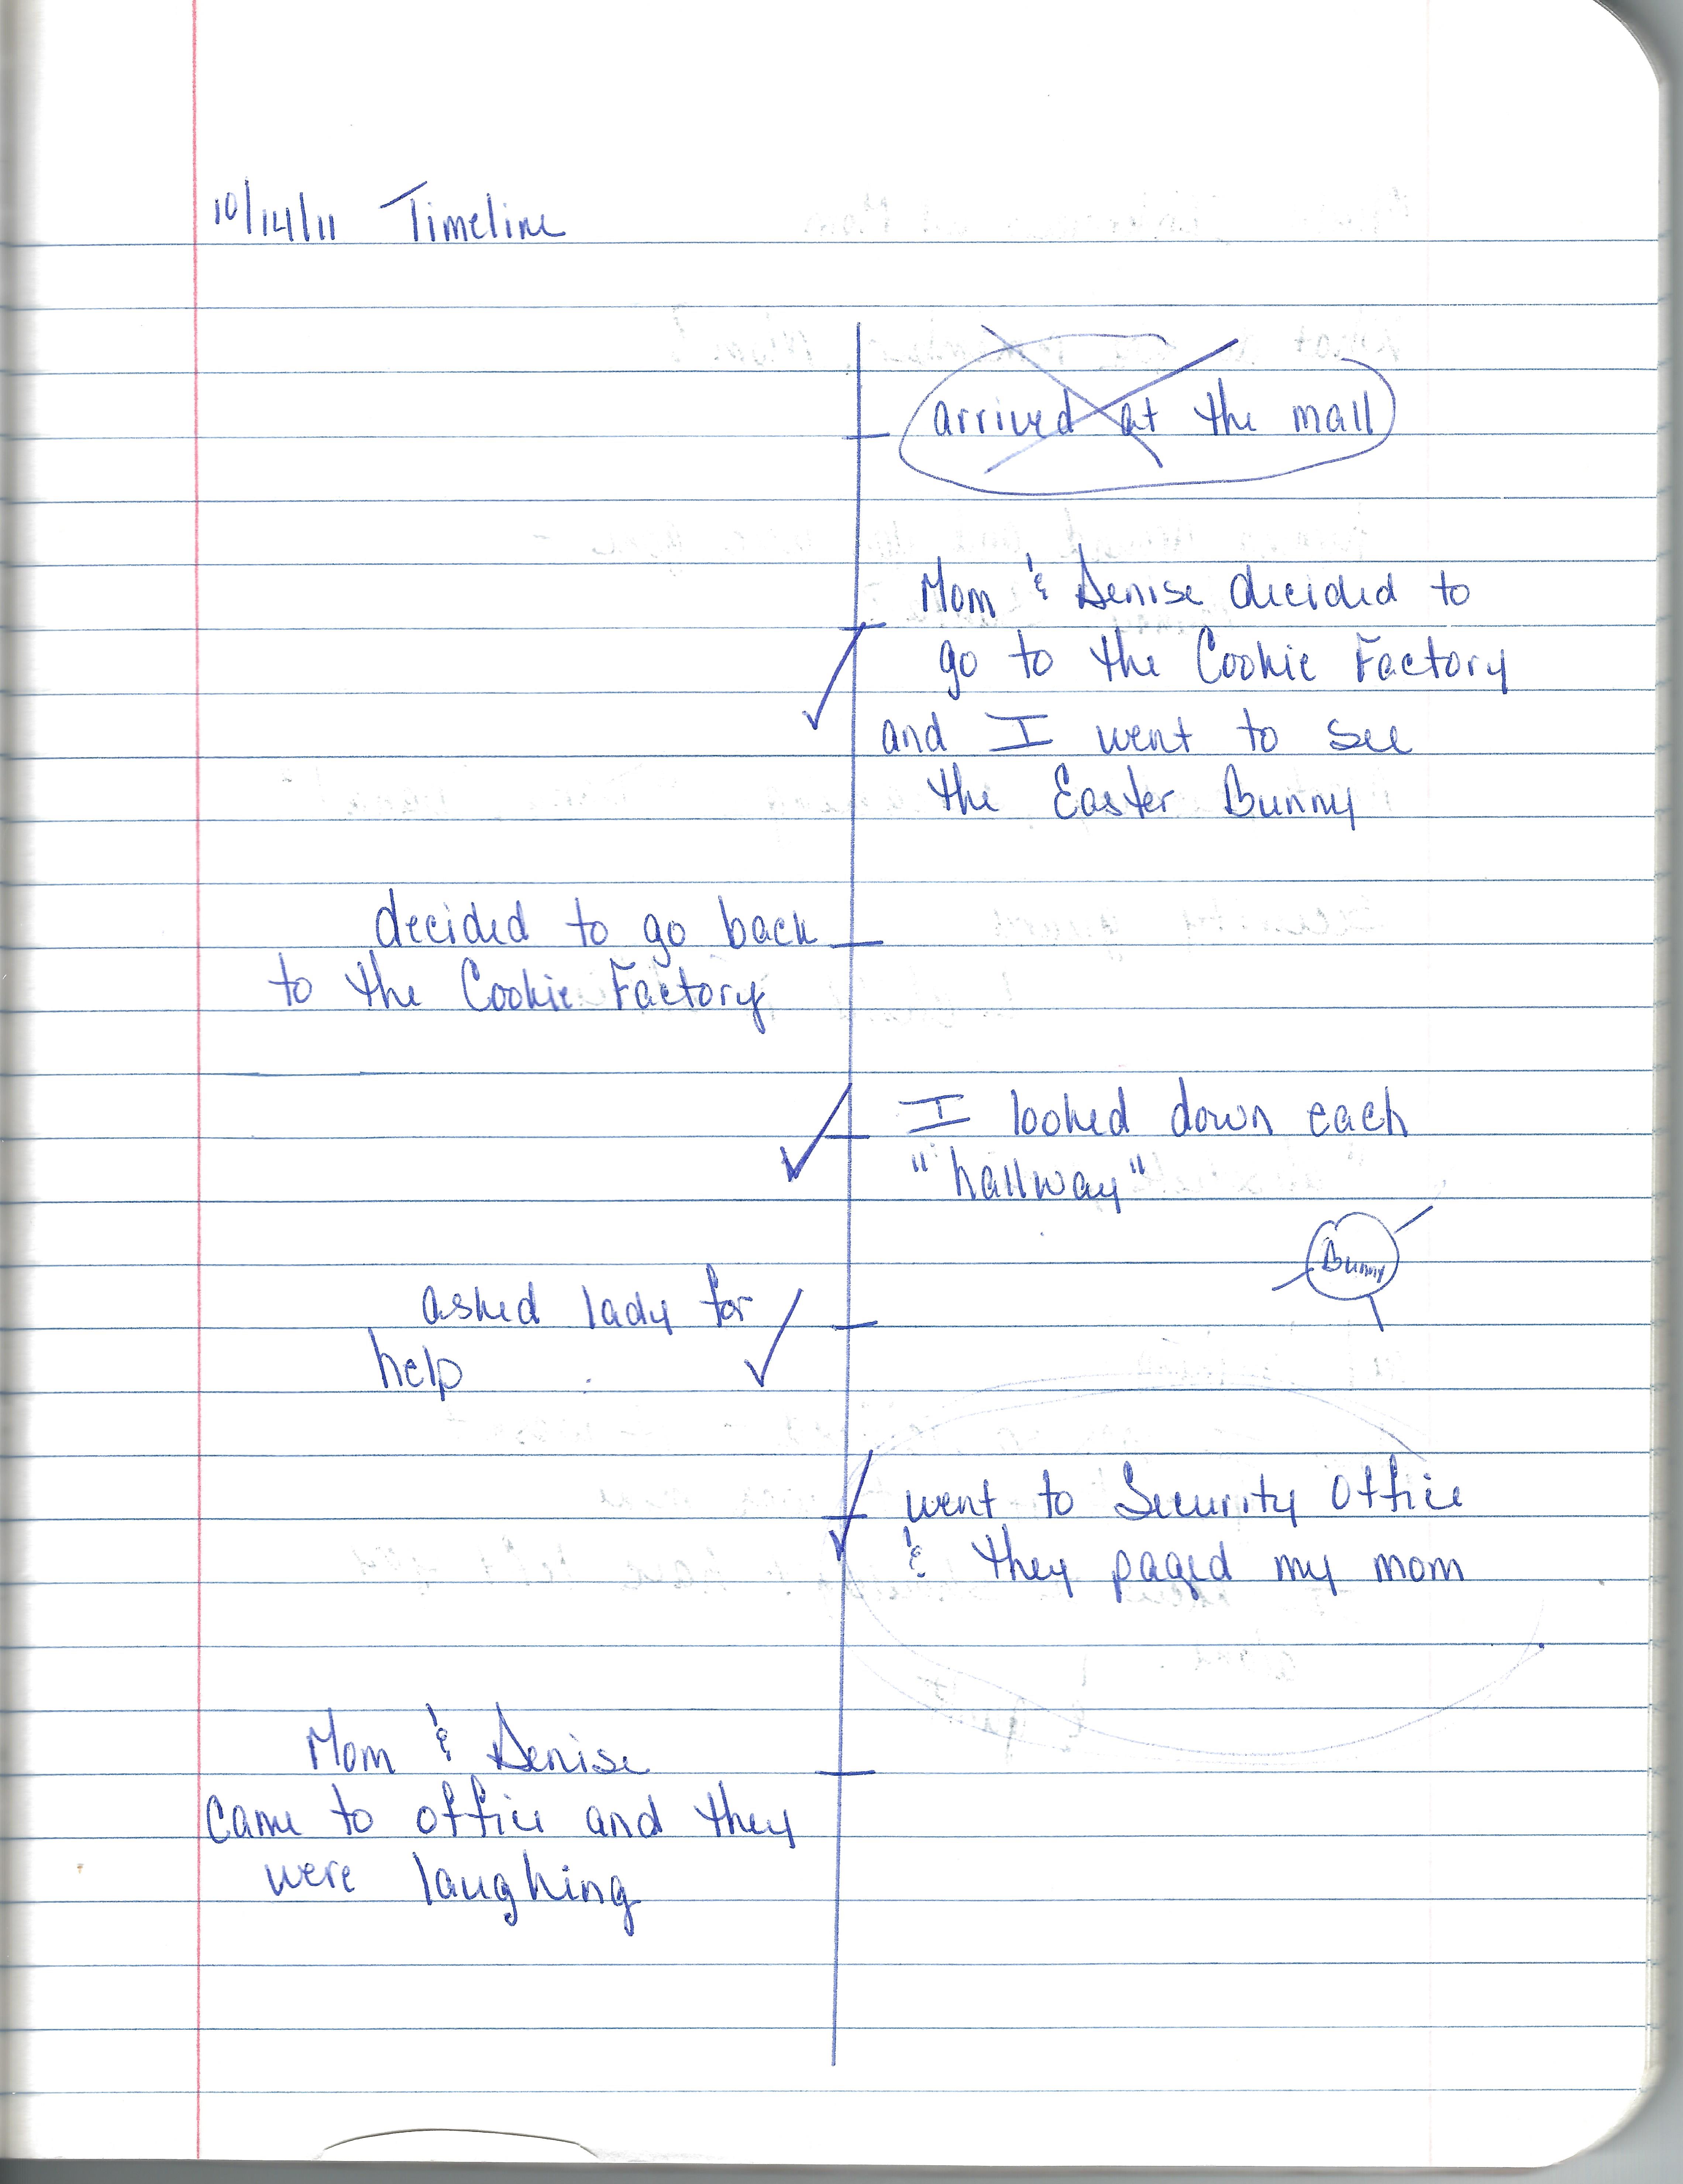 10/14/11 Timeline
arrived at the mall
Mom & Denise decided to
go to the Cookie Factory
and I went to see
the Easter Bunny
decided to go back
to the Cookie Factory
I looked down each
"hallway"
Bunny
asked lady for
help
went to Security Office
& they paged my mom
Mom & Denise
came to office and they
were laughing